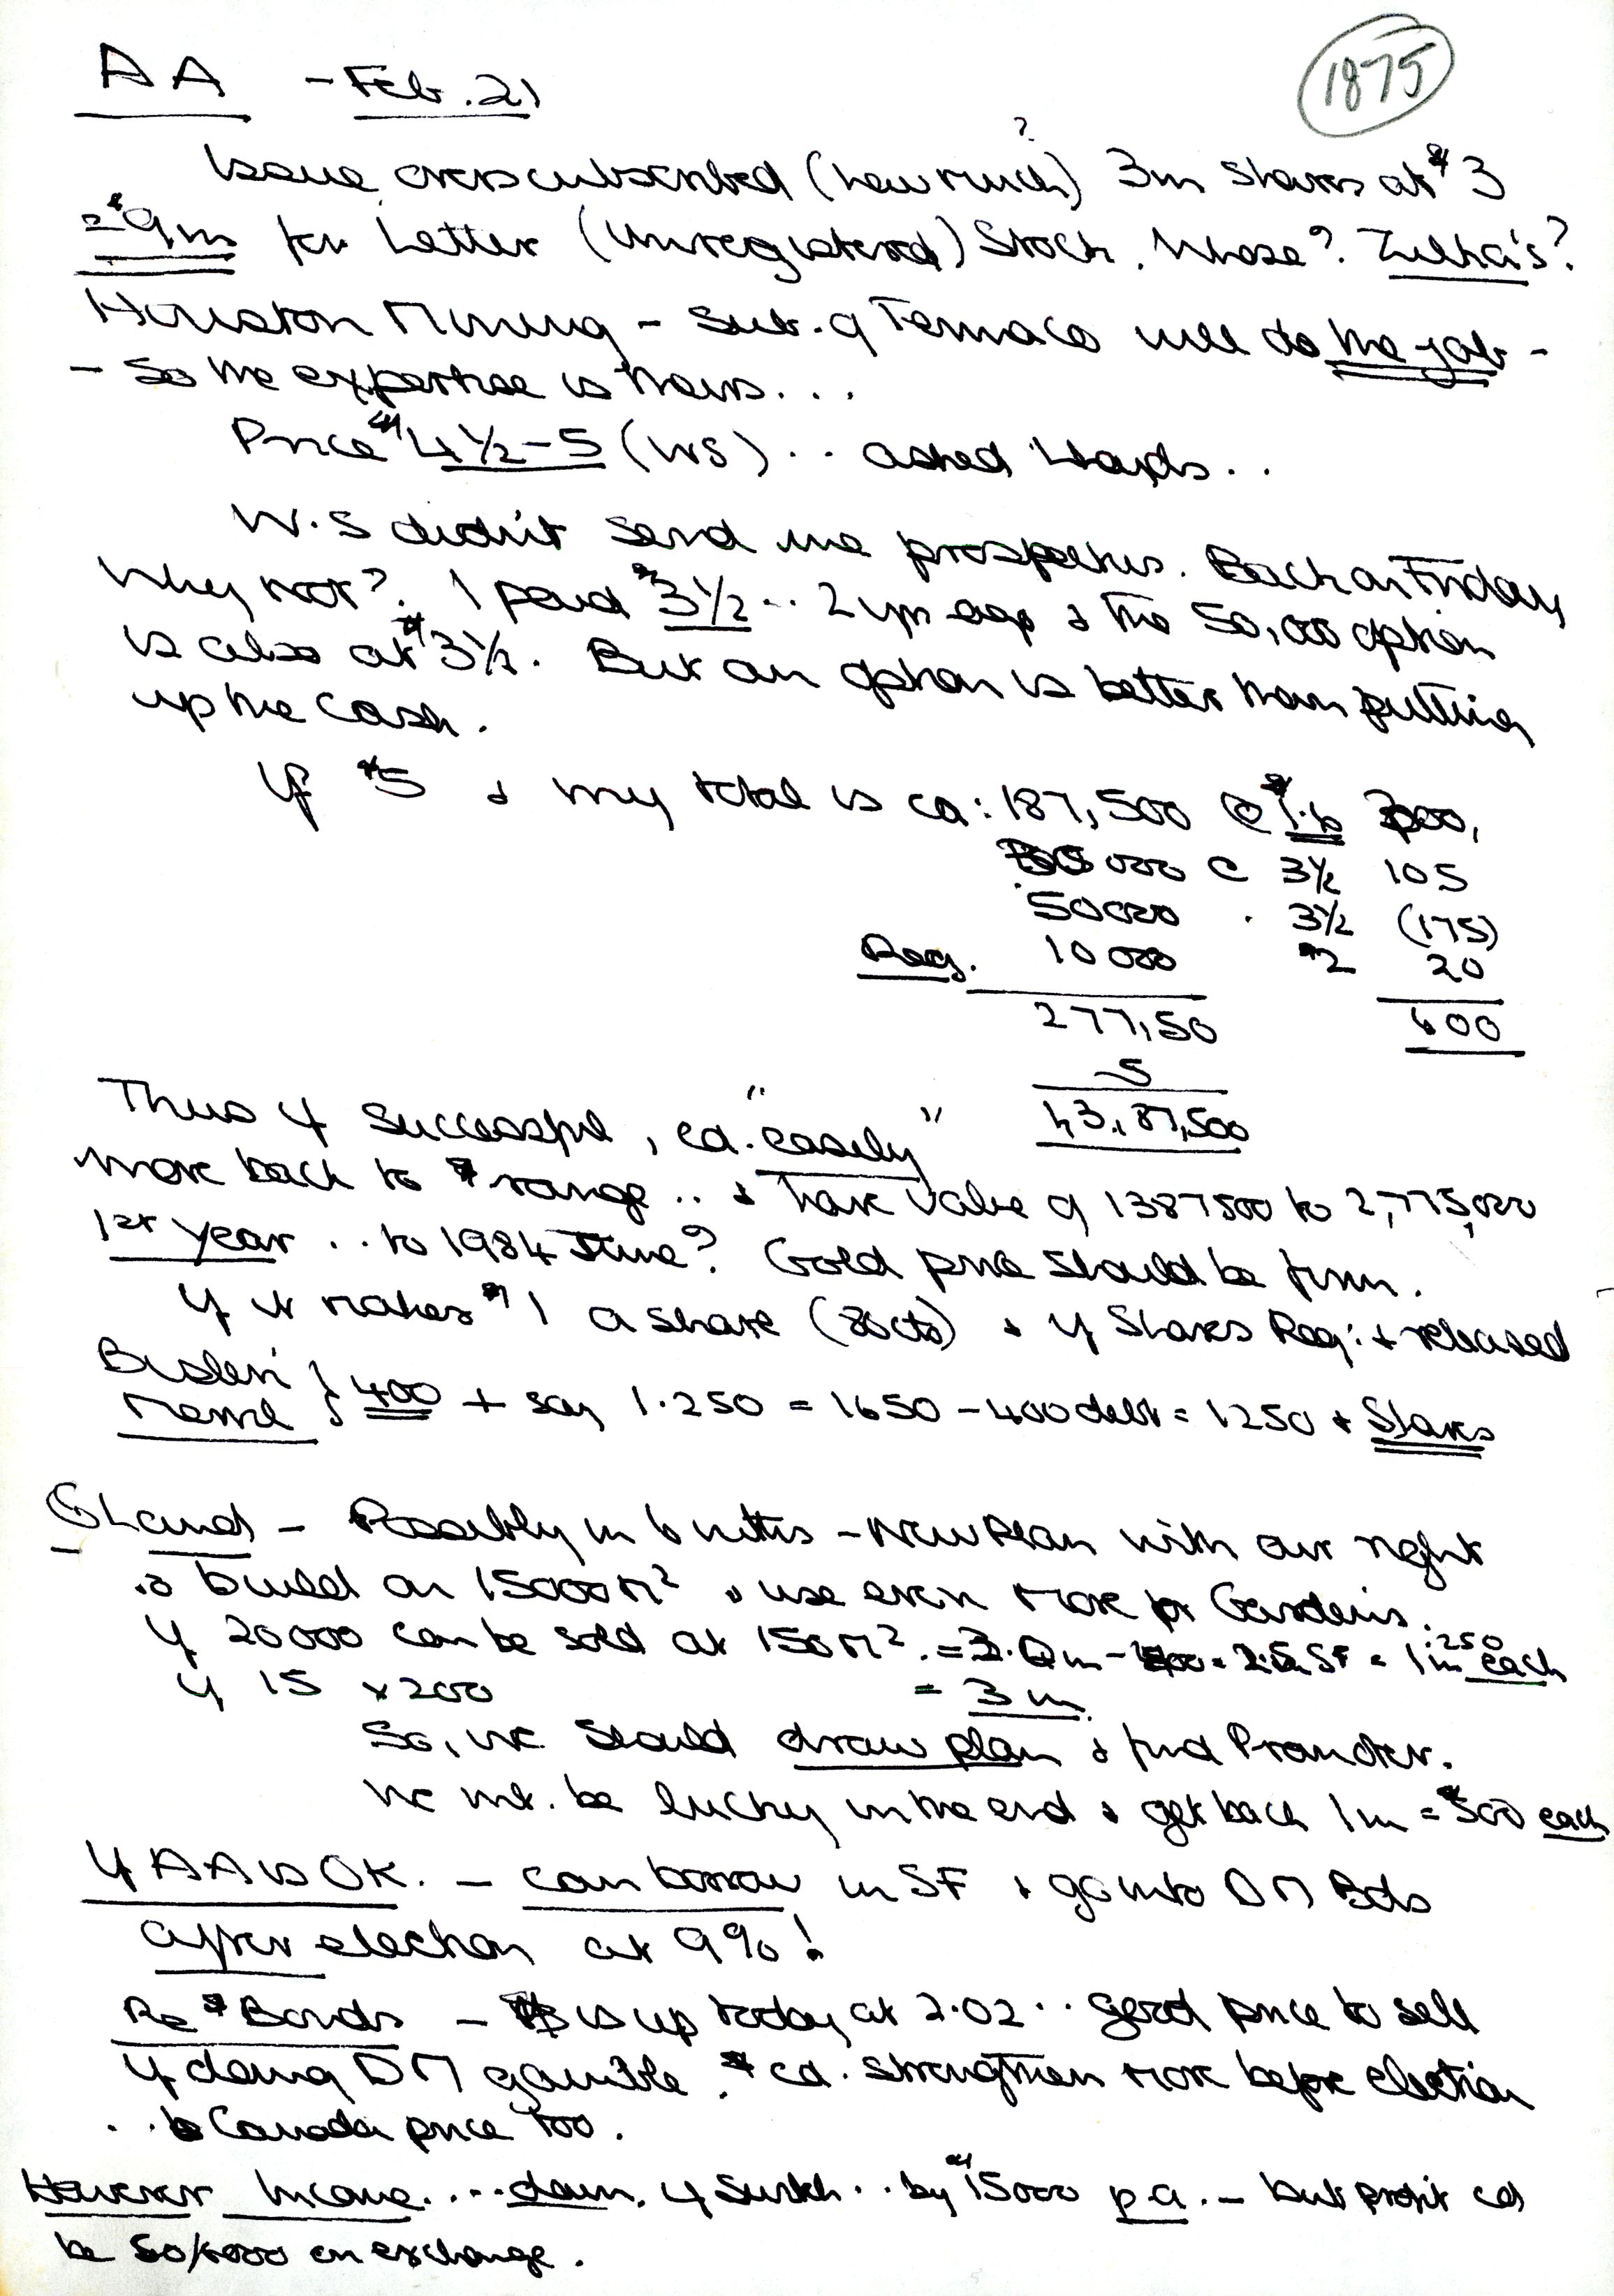 1875
AA - Feb. 21
Issue oversubscribed (how much?) 3m shares at $3
= $9m for Letter (Unregistered) Stock. Whose? Zilkha's?
Houston Mining - sub. of Tennaco will do the job -
- So the expertise is theirs...
Price $4½-5 (WS) .. asked
W.S didn't send me prospectus. Back on Friday
Why not? I paid $3½ .. 2 yrs ago & the 50,000 option
is also at $3½. But an option is better than putting
up the cash.
If $5 & my total is ca: 187,500 @ $1.6 300,
30 000 @ 3½ 105
50000 . 3½ (175)
Reg. 10 000 $2 20
277,50 600
5
1,3,87,500
Thus if successful, cd. "easily"
move back to $ range .. & have value of 1387500 to 2,775,000
1st year .. to 1984 June? Gold price should be firm.
If it makes $1 a share (80cts) & if Shares Reg: & released
400 + say 1.250 = 1650 - 400 debt = 1250 + Shares
G Land - Possibly in 6 mths - New Plan with our right
to build on 15000 M² & use even more for Gardens.
If 20000 can be sold at 150 M². = 3.0m - = 2.5m SF = 1m 250 each
If 15 x 200 = 3m.
So, we should draw plan & find Promoter.
We mt. be lucky in the end & get back 1m = $500 each
If AA is OK. - can borrow in SF & go into DM Bds
after election at 9%!
Re $ Bonds - is up today at 2.02 .. good price to sell
if doing DM gamble. $ cd. strengthen more before election
... & Canada price too.
However Income.... down, if switch .. by $15000 p.a. - but profit cd
be 50/ on exchange.